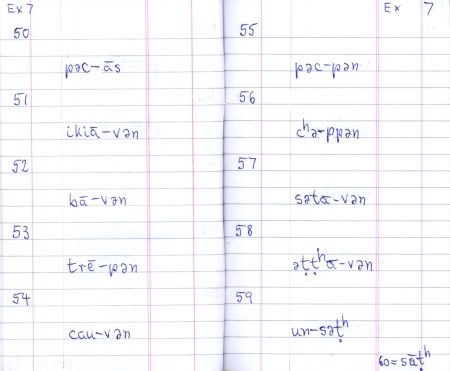 Ex 7
50
pəc-ās
51
ikiā-vən
52
bā-vən
53
trē-pən
54
cau-vən
Ex 7
55
pəc-pən
56
cʰə-ppən
57
sətā-vən
58
əṭṭʰā-vən
59
un-səṭʰ
60=sāṭʰ